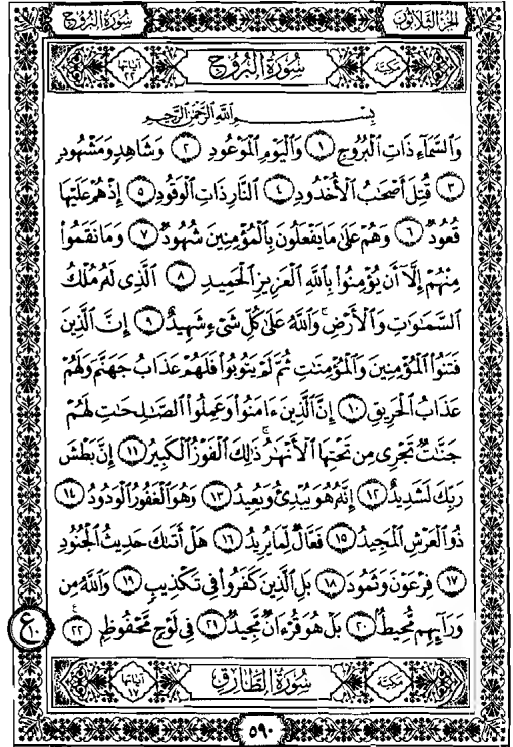 الجزء الثلاثون سورة البروج
مكية سُورَةُ البُرُوجِ آياتها ٢٢
بِسْمِ اللَّهِ الرَّحْمَنِ الرَّحِيمِ
وَٱلسَّمَآءِ ذَاتِ ٱلْبُرُوجِ ١ وَٱلْيَوْمِ ٱلْمَوْعُودِ ٢ وَشَاهِدٍ وَمَشْهُودٍ
٣ قُتِلَ أَصْحَٰبُ ٱلْأُخْدُودِ ٤ ٱلنَّارِ ذَاتِ ٱلْوَقُودِ ٥ إِذْ هُمْ عَلَيْهَا
قُعُودٌ ٦ وَهُمْ عَلَىٰ مَا يَفْعَلُونَ بِٱلْمُؤْمِنِينَ شُهُودٌ ٧ وَمَا نَقَمُوا۟
مِنْهُمْ إِلَّآ أَن يُؤْمِنُوا۟ بِٱللَّهِ ٱلْعَزِيزِ ٱلْحَمِيدِ ٨ ٱلَّذِى لَهُۥ مُلْكُ
ٱلسَّمَٰوَٰتِ وَٱلْأَرْضِ ۚ وَٱللَّهُ عَلَىٰ كُلِّ شَىْءٍ شَهِيدٌ ٩ إِنَّ ٱلَّذِينَ
فَتَنُوا۟ ٱلْمُؤْمِنِينَ وَٱلْمُؤْمِنَٰتِ ثُمَّ لَمْ يَتُوبُوا۟ فَلَهُمْ عَذَابُ جَهَنَّمَ وَلَهُمْ
عَذَابُ ٱلْحَرِيقِ ١٠ إِنَّ ٱلَّذِينَ ءَامَنُوا۟ وَعَمِلُوا۟ ٱلصَّٰلِحَٰتِ لَهُمْ
جَنَّٰتٌ تَجْرِى مِن تَحْتِهَا ٱلْأَنْهَٰرُ ۚ ذَٰلِكَ ٱلْفَوْزُ ٱلْكَبِيرُ ١١ إِنَّ بَطْشَ
رَبِّكَ لَشَدِيدٌ ١٢ إِنَّهُۥ هُوَ يُبْدِئُ وَيُعِيدُ ١٣ وَهُوَ ٱلْغَفُورُ ٱلْوَدُودُ ١٤
ذُو ٱلْعَرْشِ ٱلْمَجِيدُ ١٥ فَعَّالٌ لِّمَا يُرِيدُ ١٦ هَلْ أَتَىٰكَ حَدِيثُ ٱلْجُنُودِ
١٧ فِرْعَوْنَ وَثَمُودَ ١٨ بَلِ ٱلَّذِينَ كَفَرُوا۟ فِى تَكْذِيبٍ ١٩ وَٱللَّهُ مِن
وَرَآئِهِم مُّحِيطٌ ٢٠ بَلْ هُوَ قُرْءَانٌ مَّجِيدٌ ٢١ فِى لَوْحٍ مَّحْفُوظٍ ٢٢
ع ١٠
مكية سُورَةُ الطَّارِقِ آياتها ١٧
٥٩٠